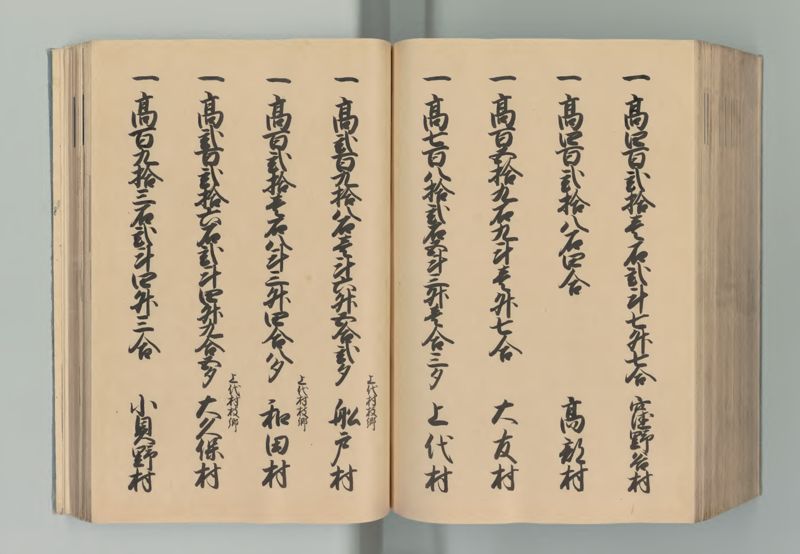 一 高四百弐拾壱石弐斗七升七合 窪野谷村
一 高四百弐拾八石四合 高部村
一 高百五拾九石九斗壱升七合 大友村
一 高七百八拾弐石五斗三升壱合三夕 上代村
上代村枝郷
一 高弐百九拾八石壱斗六升五合弐夕 舩戸村
上代村枝郷
一 高百弐拾壱石八斗三升四合八夕 和田村
上代村枝郷
一 高弐百弐拾六石弐斗四升九合五夕 大久保村
一 高百九拾三石弐斗四升三合 小貝野村